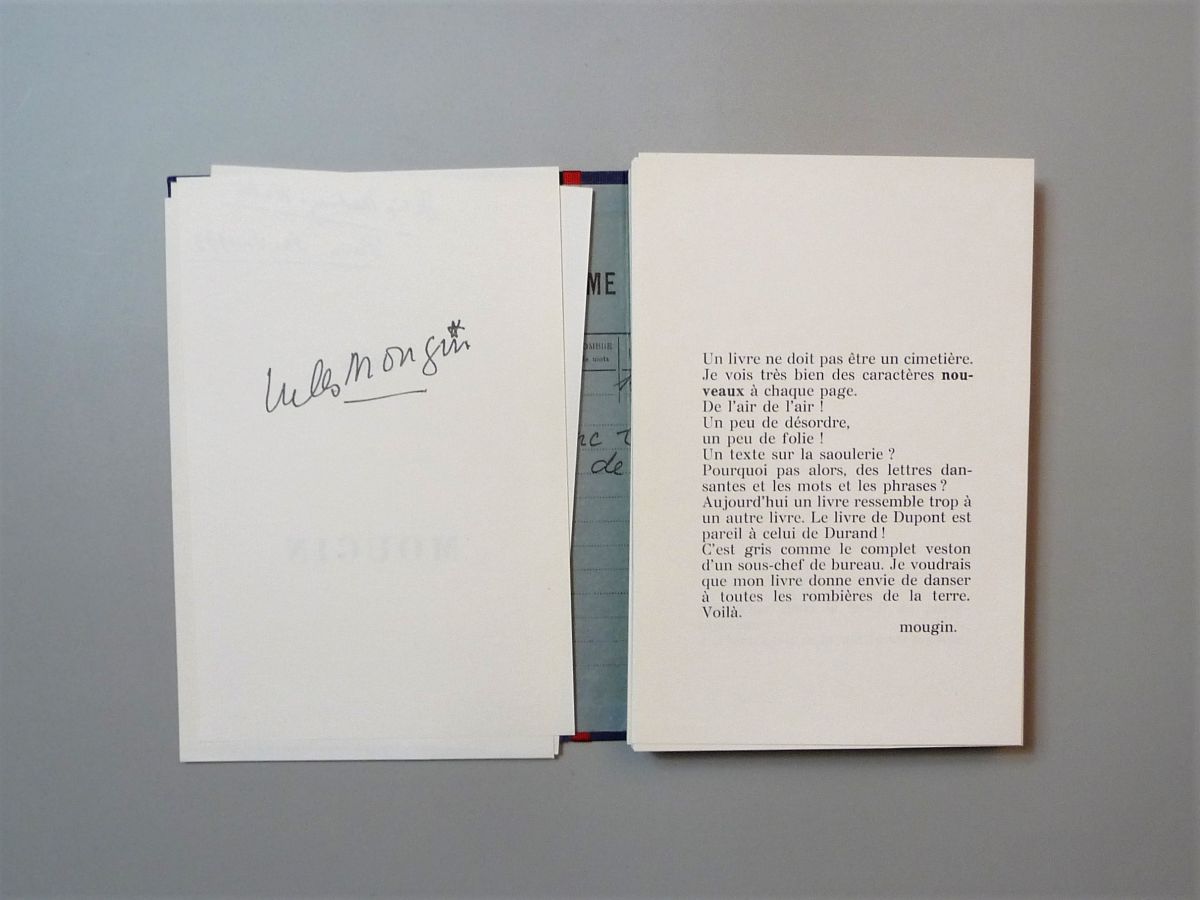 Jules Mougin
MOUGIN
ME
OMBRE
mots
de
Un livre ne doit pas être un cimetière.
Je vois très bien des caractères nou-
veaux à chaque page.
De l'air de l'air !
Un peu de désordre,
un peu de folie !
Un texte sur la saoulerie ?
Pourquoi pas alors, des lettres dan-
santes et les mots et les phrases ?
Aujourd'hui un livre ressemble trop à
un autre livre. Le livre de Dupont est
pareil à celui de Durand !
C'est gris comme le complet veston
d'un sous-chef de bureau. Je voudrais
que mon livre donne envie de danser
à toutes les rombières de la terre.
Voilà.
mougin.